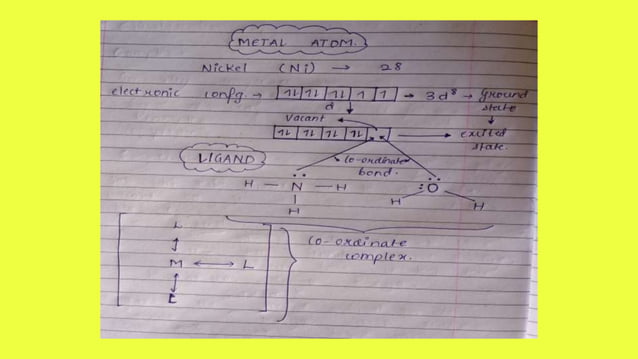 METAL ATOM.
Nickel (Ni) → 28
electronic confg → 1l 1l 1l 1 1 → 3d⁸ → ground state
d
Vacant
1l 1l 1l 1l → exited state.
LIGAND
Co-ordinate bond.
H — N — H :O
H H H
L Co-ordinate
M ↔ L complex.
L